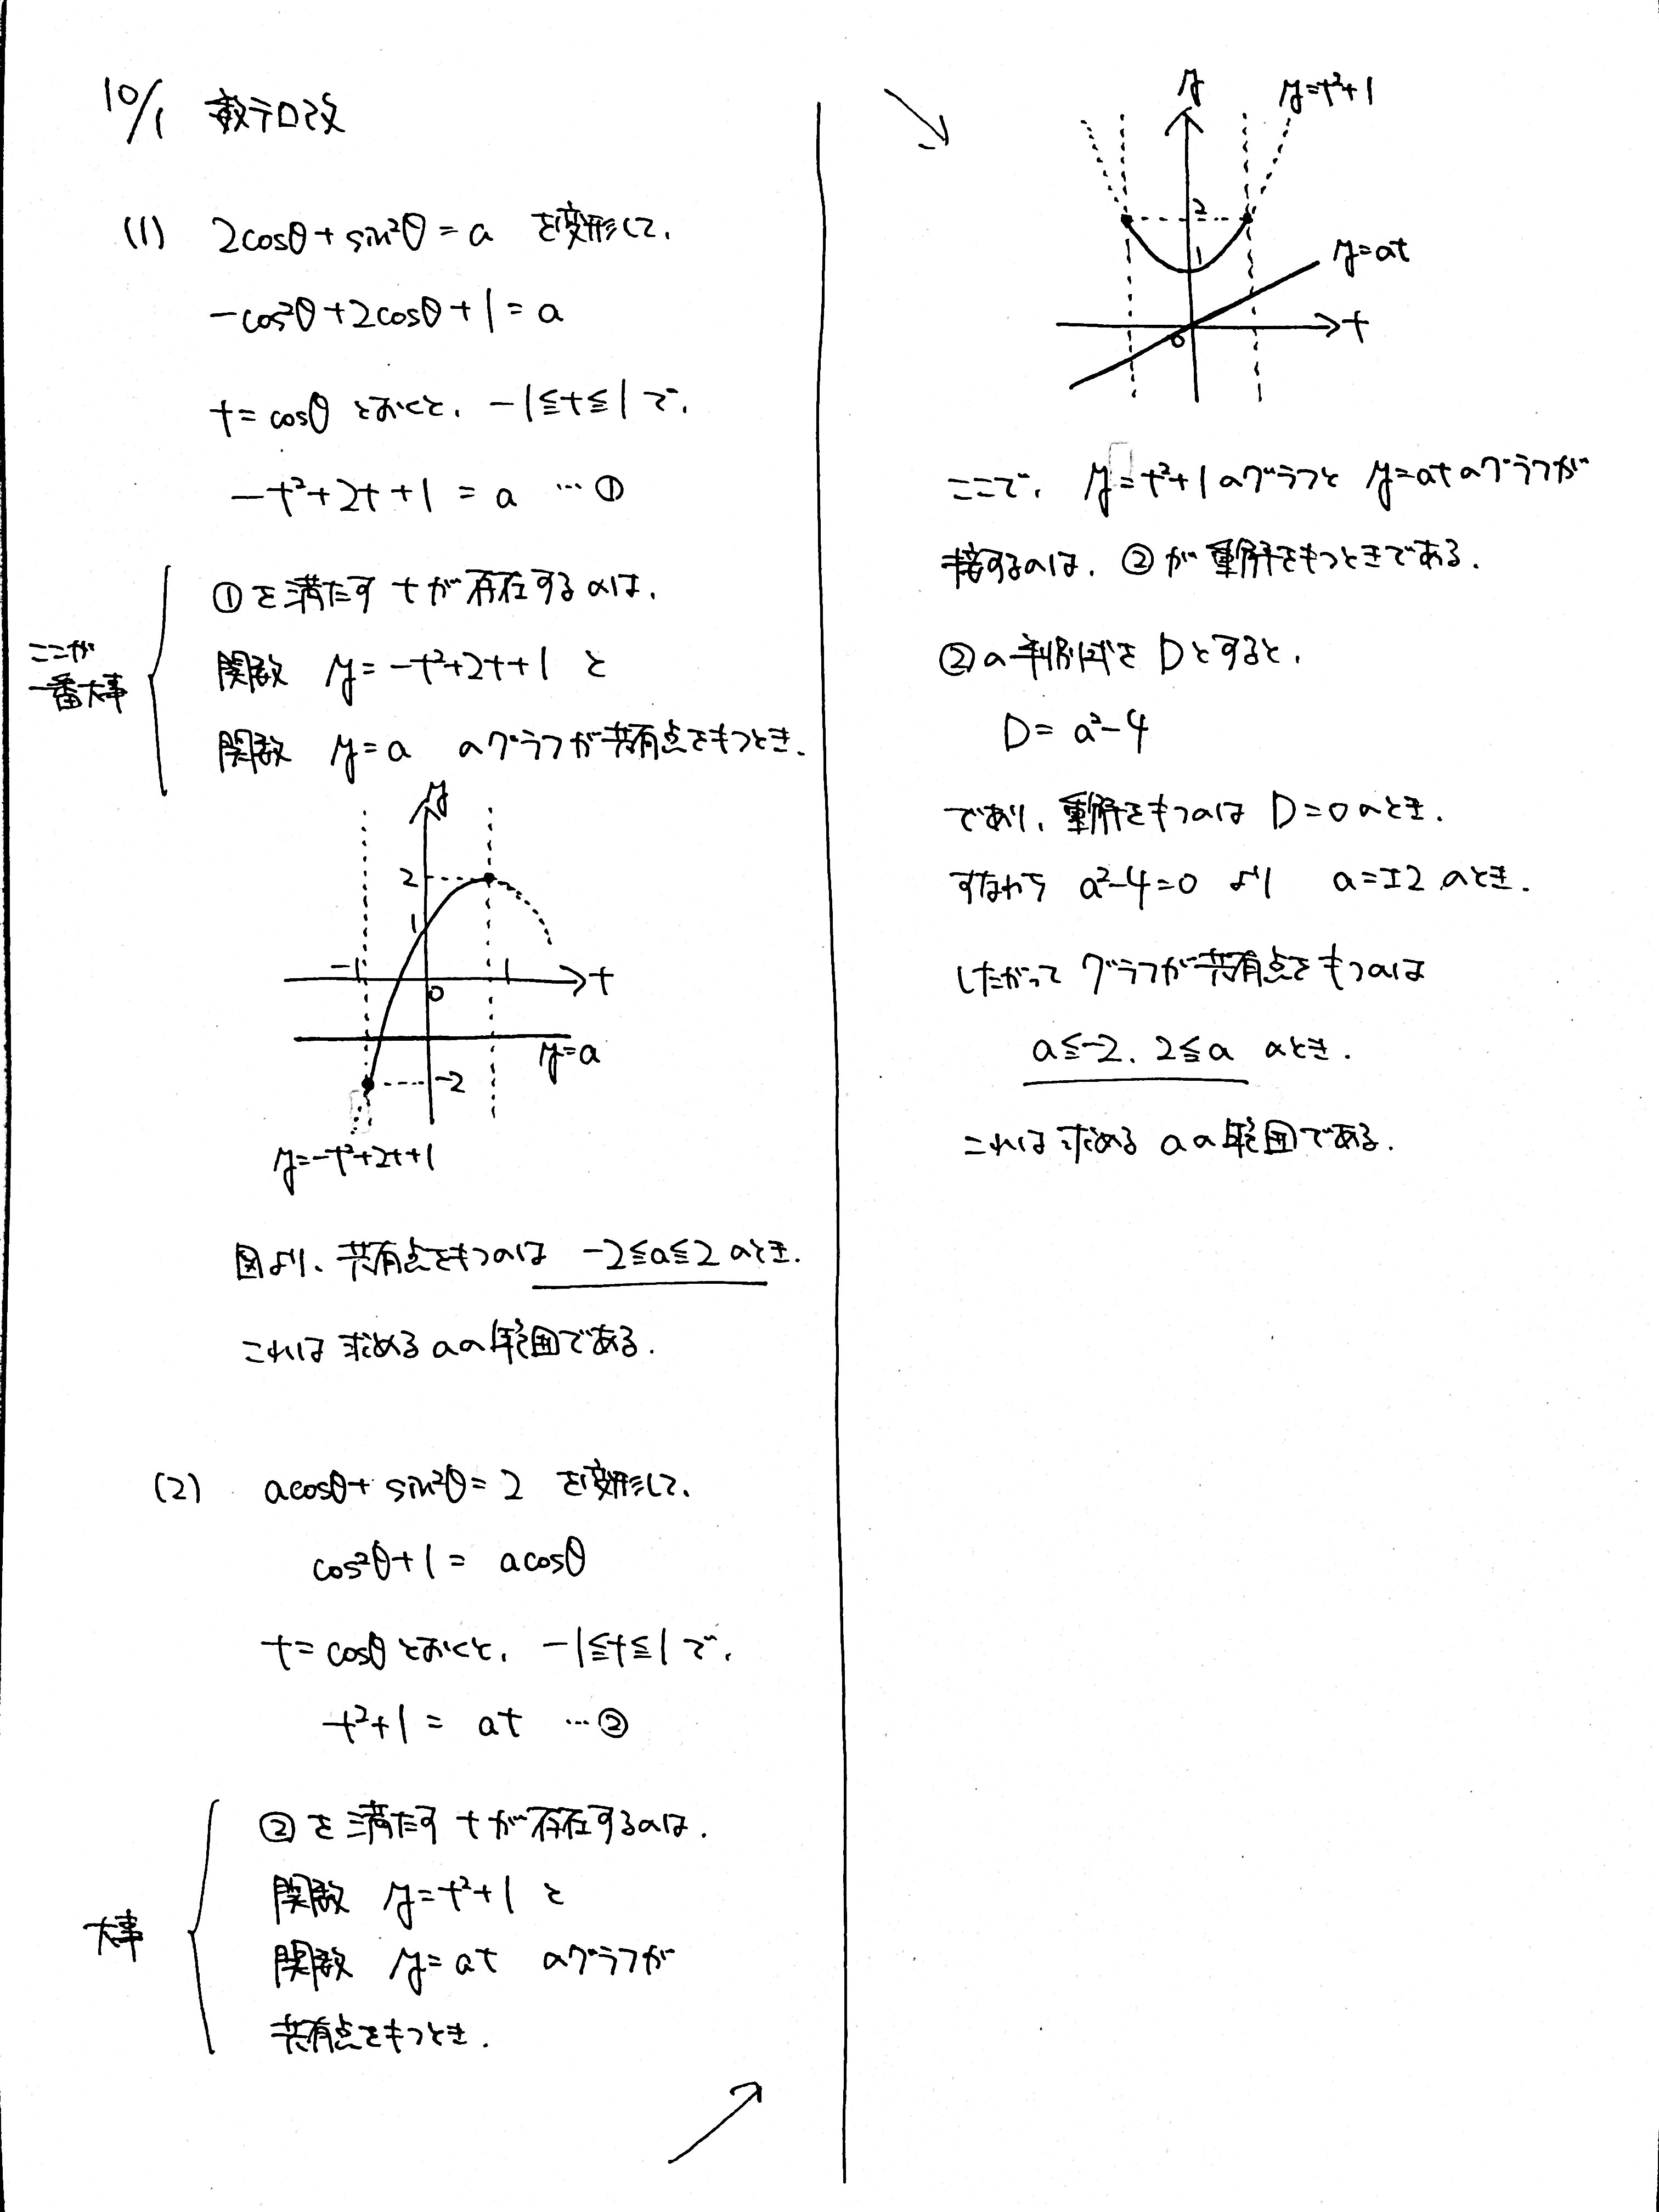 10/1 数テロ改
(1) 2cosθ+sin²θ=a を変形して、
-cos²θ+2cosθ+1=a
t=cosθとおくと、-1≦t≦1で、
-t²+2t+1=a …①
ここが
一番大事
①を満たすtが存在するのは、
関数 y=-t²+2t+1 と
関数 y=a のグラフが共有点をもつとき.
y
2
1
-1
0
1
t
y=a
-2
y=-t²+2t+1
図より、共有点をもつのは -2≦a≦2のとき.
これは求めるaの範囲である.
(2) acosθ+sin²θ=2 を変形して、
cos²θ+1=acosθ
t=cosθとおくと、-1≦t≦1で、
t²+1=at …②
大事
②を満たすtが存在するのは、
関数 y=t²+1 と
関数 y=at のグラフが
共有点をもつとき.
y
y=t²+1
2
1
y=at
0
t
ここで、y=t²+1のグラフとy=atのグラフが
接するのは、②が重解をもつときである.
②の判別式をDとすると、
D=a²-4
であり、重解をもつのはD=0のとき.
すなわち a²-4=0 より a=±2 のとき.
したがって グラフが共有点をもつのは
a≦-2、2≦a のとき.
これは求めるaの範囲である.